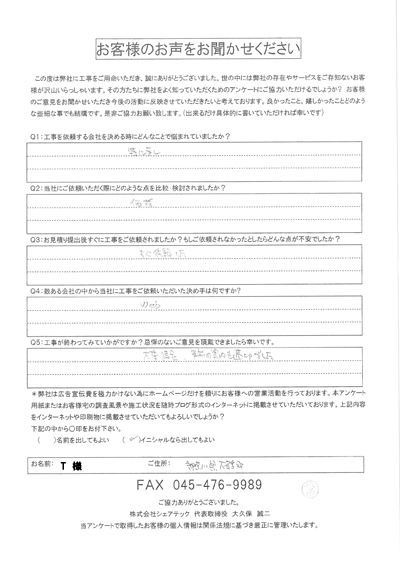 お客様のお声をお聞かせください
この度は弊社に工事をご用命いただき、誠にありがとうございました。世の中には弊社の存在やサービスをご存知ないお客
様が沢山いらっしゃいます。その方たちに弊社をよく知っていただくためのアンケートにご協力いただけるでしょうか? お客様
のご意見をお聞かせいただき今後の活動に反映させていただきたいと考えております。良かったこと、嬉しかったことどのよう
な些細な事でも結構です。是非ご協力お願い致します。(出来るだけ具体的に書いていただければ幸いです)
Q1:工事を依頼する会社を決める時にどんなことで悩まれていましたか?
特になし
Q2:当社にご依頼いただく際にどのような点を比較・検討されましたか?
価格
Q3:お見積り提出後すぐに工事をご依頼されましたか?もしご依頼されなかったとしたらどんな点が不安でしたか?
Q4:数ある会社の中から当社に工事をご依頼いただいた決め手は何ですか?
Q5:工事が終わってみていかがですか?忌憚のないご意見を頂戴できましたら幸いです。
*弊社は広告宣伝費を極力かけない為にホームページだけを頼りにお客様への営業活動を行っております。本アンケート
用紙またはお客様宅の調査風景や施工状況を随時ブログ形式のインターネットに掲載させていただいております。上記内容
をインターネットや印刷物に掲載させていただいてもよろしいでしょうか?
下記の中から〇印をお付下さい。
( )名前を出してもよい ( )イニシャルなら出してもよい
お名前: T 様 ご住所:
FAX 045-476-9989
ご協力ありがとうございました。
株式会社シェアテック 代表取締役 大久保 誠二
当アンケートで取得したお客様の個人情報は関係法規に基づき厳正に管理いたします。